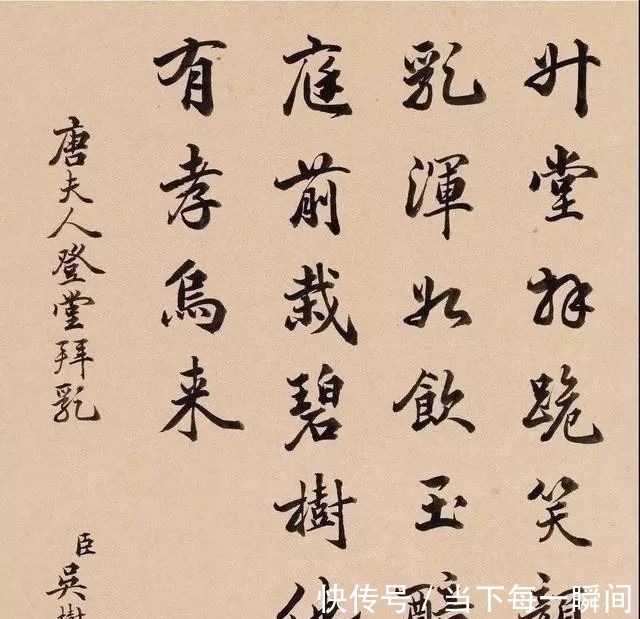 升堂拜跪笑
乳渾如飲玉
庭前栽碧樹
有孝烏来
唐夫人登堂拜乳
臣吳樹
快传号 / 当下每一瞬间